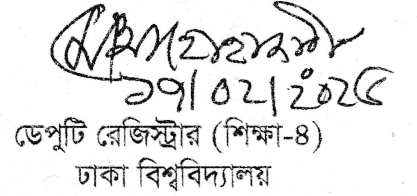 ১৭/০২/২০২৫
ডেপুটি রেজিস্ট্রার (শিক্ষা-৪)
ঢাকা বিশ্ববিদ্যালয়